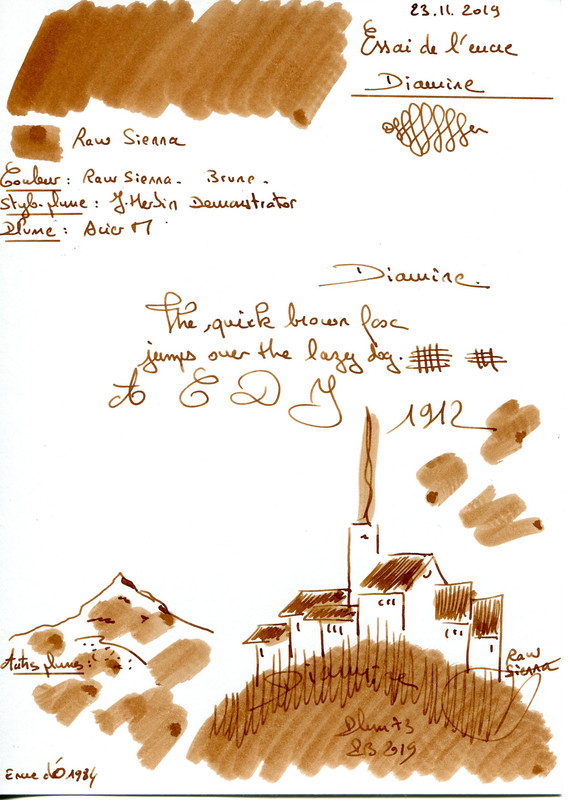 23.11.2019
Essai de l'encre
Diamine
Raw Sienna
Couleur : Raw Sienna - Brune.
Stylo-plume : J. Herbin Demonstrator
Plume : Acier M
Diamine.
The quick brown fox
jumps over the lazy dog.
A E D J
1912
Autres plumes :
Diamine
Raw
Sienna
Plum 73
23 2019
1984